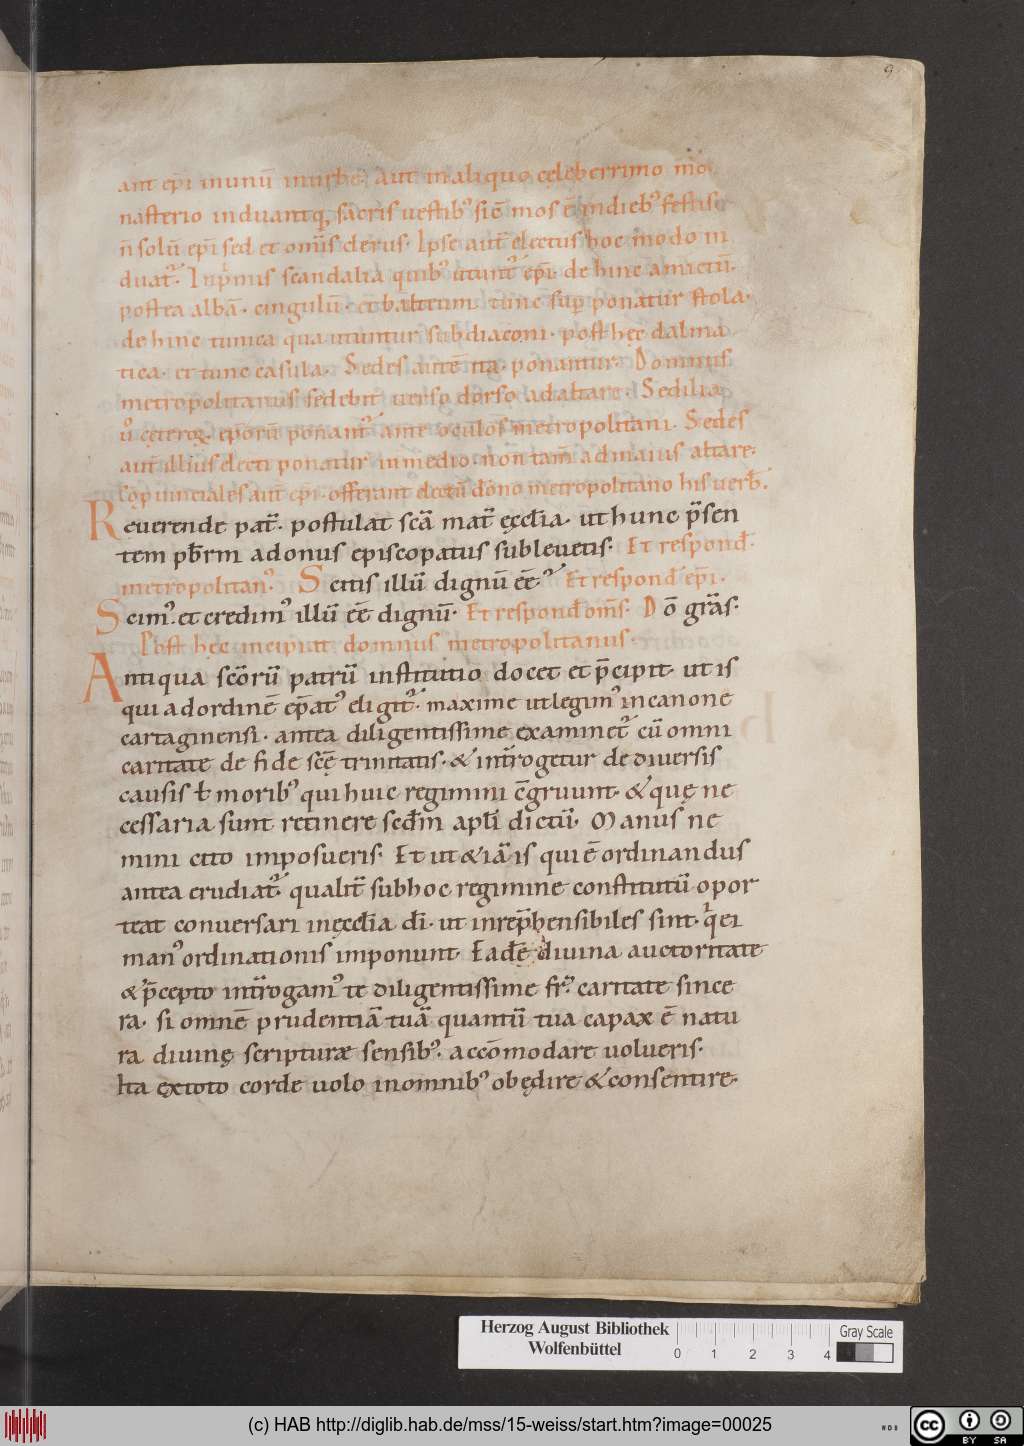 9
ant ep̄i inunū inurbe. aut inaliquo celeberrimo mo
nasterio induantq; sacris uestib; sic̄ mos ē indieb; festis
n̄ solū ep̄i sed et om̄is clerus. Ipse aut̄ electus hoc modo in
duat̄. Inp̄mis scandalia quib; utunt̄ ep̄i. de hinc amictū.
postea albā. cingulū. et balteum. tunc sup̱ponatur stola.
de hinc tunica qua utuntur subdiaconi. post hęc dalma
tica. et tunc casula. Sedes autē ita ponantur. Domnus
metropolitanus sedebit uerso dorso ad altare. Sedilia
ů cęteroꝝ ep̄orū ponant̄ ante oculos metropolitani. Sedes
aut̄ illius electi ponatur in medio. non tam̄ ad maius altare.
Cōp̱uinciales aut̄ ep̄i. offerant electū dōno metropolitano his uerb̄.
Reuerende pat̄. postulat sc̄ā mat̄ ęccl̄ia. ut hunc p̄sen
tem pb̄rm ad onus episcopatus subleuetis. Et respond̄.
metropolitan᾽. Scitis illū dignū ēē? Et respond̄ ep̄i.
Scim᾽. et credim᾽ illū ēē dignū. Et respond̄ om̄s. Dō gr̄as.
Post hęc incipiat domnus metropolitanus.
Antiqua sc̄orū patrū institutio docet et p̄cipit. ut is
qui ad ordinē ep̄at᾽ eligit̄. maxime ut legim᾽ in canone
cartaginensi. antea diligentissime examinet̄ cū omni
caritate de fide sc̄ę trinitatis. & int̄rogetur de diuersis
causis ł morib; qui huic regimini c̄gruunt. & quę ne
cessaria sunt retinere sed̄m apl̄i dictū. Manus ne
mini cito imposueris. Et ut & iā is qui ē ordinandus
antea erudiat̄. qualit̄ sub hoc regimine constitutū opor
teat conuersari in ęccl̄ia dī. ut inrep̄hensibiles sint. qi ei
man᾽ ordinationis imponunt. Eadē diuina auctoritate
& p̄cepto int̄rogam᾽ te diligentissime fr̄. caritate since
ra. si omnē prudentiā tuā quantū tua capax ē natu
ra diuinę scripturæ sensib;. accōmodare uolueris.
Ita ex toto corde uolo in omnib; obędire & consentire.
Herzog August Bibliothek
Wolfenbüttel
0 1 2 3 4
Gray Scale
(c) HAB http://diglib.hab.de/mss/15-weiss/start.htm?image=00025
cc BY SA